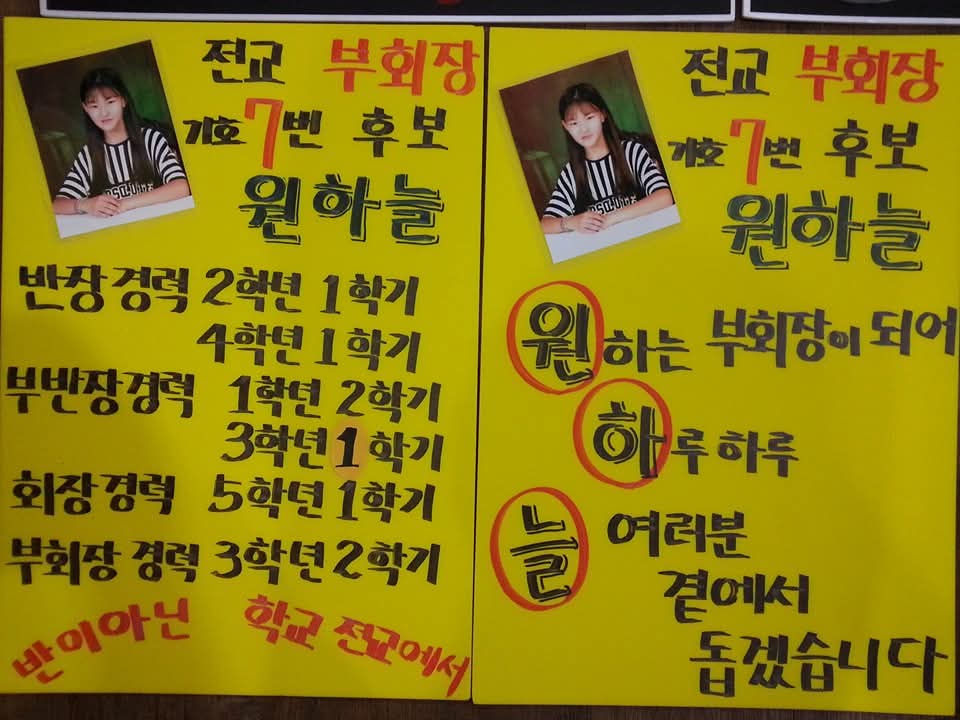 전교 부회장
기호 7번 후보
원하늘
반장경력 2학년 1학기
4학년 1학기
부반장경력 1학년 2학기
3학년 1학기
회장경력 5학년 1학기
부회장 경력 3학년 2학기
반이아닌 학교 전교에서
전교 부회장
기호 7번 후보
원하늘
원하는 부회장이 되어
하루하루
늘 여러분
곁에서
돕겠습니다